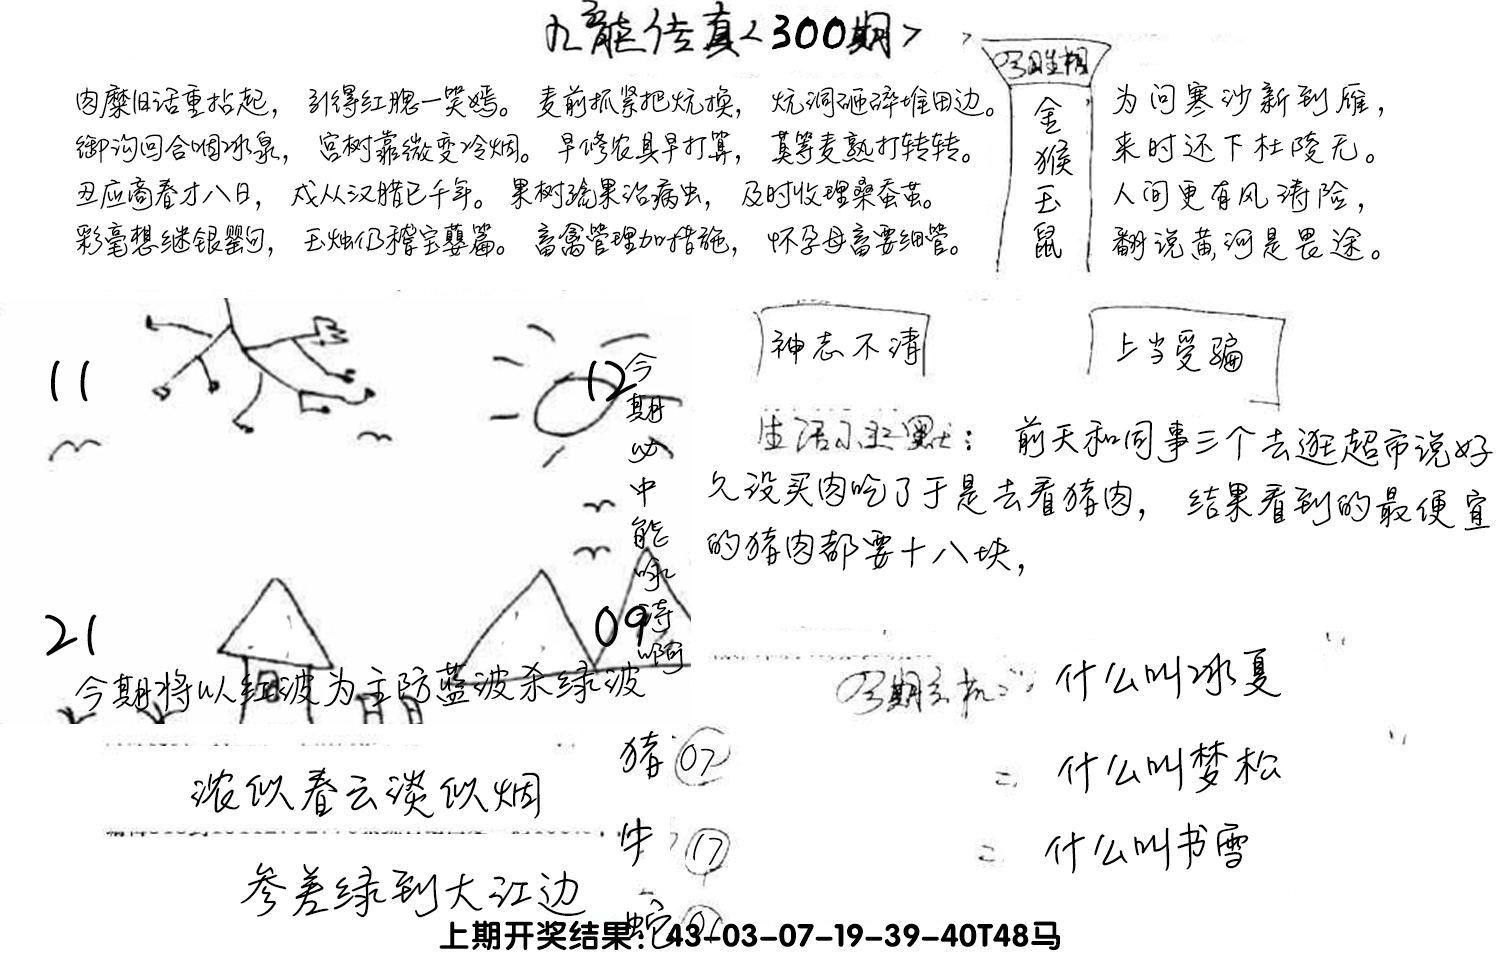 九龙传真<300期>
今期生相
金猴玉鼠
肉糜旧话重拈起，引得红腮一笑嫣。麦前抓紧把炕换，炕洞砸碎堆田边。
御沟回合咽冰泉，宫树靠微变冷烟。早修农具早打算，莫等麦熟打转转。
丑应商春才八日，戍从汉腊已千年。果树疏果治病虫，及时收理桑蚕茧。
彩毫想继银罂句，玉烛仍稽宝孽篇。畜禽管理加措施，怀孕母畜要细管。
为问寒沙新到雁，
来时还下杜陵无。
人间更有风涛险，
翻说黄河是畏途。
11
12
21
09
今期必中能咏诗啊
今期将以红波为主防蓝波杀绿波
神志不清
上当受骗
生活小幽默：前天和同事三个去逛超市说好
久没买肉吃了于是去看猪肉，结果看到的最便宜
的猪肉都要十八块，
今期玄机：什么叫冰夏
= 什么叫梦松
= 什么叫书雪
浓似春云淡似烟
参差绿到大江边
猪 07
牛 17
蛇
上期开奖结果：43-03-07-19-39-40T48马